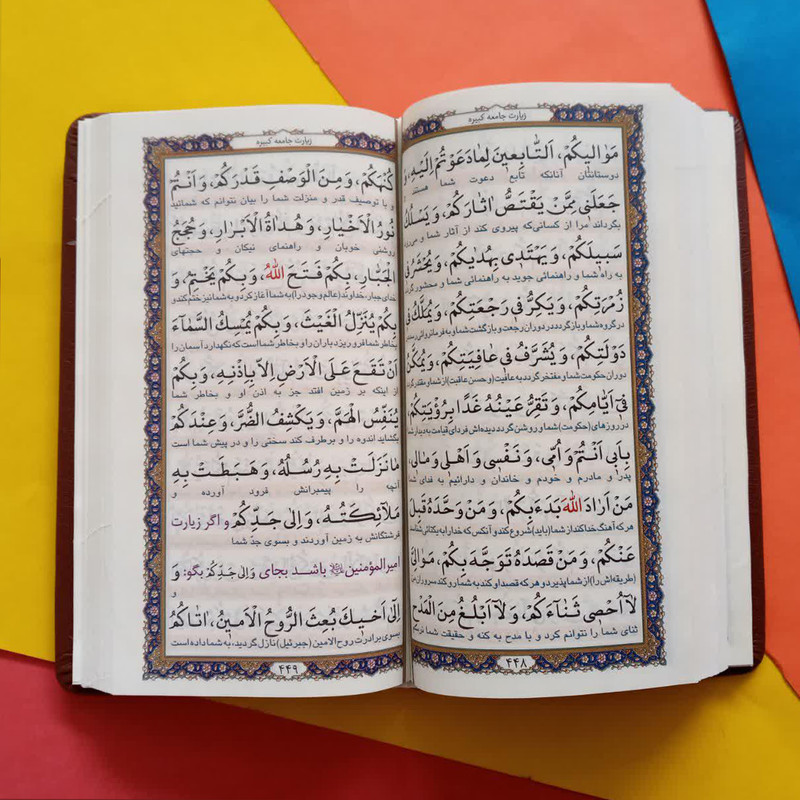 زیارت جامعه کبیره
مَوَالِیکُمْ، اَلتَّابِعِینَ لِمَا دَعَوْتُمْ اِلَیْهِ،
دوستانتان آنانکه تابع دعوت شما هستند
جَعَلَنِی مِمَّنْ یَقْتَصُّ اثَارَکُمْ، وَ یَسْلُکُ
بگرداند مرا از کسانی‌که پیروی کند از آثار شما و می‌رود
سَبِیلَکُمْ، وَ یَهْتَدِی بِهُدَیکُمْ، وَ یُحْشَرُ فِی
به راه شما و راهنمائی جوید به راهنمائی شما و محشور گردد
زُمْرَتِکُمْ، وَ یَکِرُّ فِی رَجْعَتِکُمْ، وَ یُمَلَّکُ فِی
در گروه شما و باز گردد در دوران رجعت و بازگشت شما و به فرمانروائی رسد
دَوْلَتِکُمْ، وَ یُشَرَّفُ فِی عَافِیَتِکُمْ، وَ یُمَکَّنُ
دوران حکومت شما و مفتخر گردد به عافیت (و حسن عاقبت) از شما و مقتدر گردد
فِی اَیَّامِکُمْ، وَ تَقَرُّ عَیْنُهُ غَدًا بِرُؤْیَتِکُمْ،
در روزهای (حکومت) شما و روشن گردد دیده‌اش فردای قیامت به دیدار شما
بِاَبِی اَنْتُمْ وَ اُمِّی، وَ نَفْسِی وَ اَهْلِی وَ مَالِی،
پدر و مادرم و خودم و خاندان و دارائیم به فدای شما
مَنْ اَرَادَ اللّٰهَ بَدَءَ بِکُمْ، وَ مَنْ وَحَّدَهُ قَبِلَ
هر که آهنگ خدا کند از شما (باید) شروع کند و آنکس که خدا را به یکتائی شناسد
عَنْکُمْ، وَ مَنْ قَصَدَهُ تَوَجَّهَ بِکُمْ، مَوَالِیَّ
(طریقه‌اش را) از شما پذیرد و هر که قصد او کند به شما رو کند سروران من
لَا اُحْصِی ثَنَاءَکُمْ، وَ لَا اَبْلُغُ مِنَ الْمَدْحِ
ثنای شما را نتوانم کرد و با مدح به کنه و حقیقت شما نرسم
۴۴۸
زیارت جامعه کبیره
کُنْهَکُمْ، وَ مِنَ الْوَصْفِ قَدْرَکُمْ، وَ اَنْتُمْ
و با توصیف قدر و منزلت شما را بیان نتوانم که شمائید
نُورُ الْاَخْیَارِ، وَ هُدَاةُ الْاَبْرَارِ، وَ حُجَجُ
روشنی خوبان و راهنمای نیکان و حجتهای
الْجَبَّارِ، بِکُمْ فَتَحَ اللّٰهُ، وَ بِکُمْ یَخْتِمُ، وَ
خدای جبار، خداوند (عالم وجود را) به شما آغاز کرد و به شما نیز ختم کند و
بِکُمْ یُنَزِّلُ الْغَیْثَ، وَ بِکُمْ یُمْسِکُ السَّمَآءَ
بخاطر شما فرو ریزد باران را و بخاطر شما است که نگهدارد آسمان را
اَنْ تَقَعَ عَلَی الْاَرْضِ اِلَّا بِاِذْنِهِ، وَ بِکُمْ
از اینکه بر زمین افتد جز به اذن او و بخاطر شما
یُنَفِّسُ الْهَمَّ، وَ یَکْشِفُ الضُّرَّ، وَ عِنْدَکُمْ
بگشاید اندوه را و برطرف کند سختی را و در پیش شما است
مَا نَزَلَتْ بِهِ رُسُلُهُ، وَ هَبَطَتْ بِهِ
آنچه را پیمبرانش فرود آورده و
مَلَائِکَتُهُ، وَ اِلَی جَدِّکُمْ و اگر زیارت
فرشتگانش به زمین آوردند و بسوی جدّ شما
امیرالمؤمنین باشد بجای وَ اِلَی جَدِّکُمْ بگو: وَ
و
اِلَی اَخِیکَ بُعِثَ الرُّوحُ الْاَمِینُ، اتَاکُمُ
بسوی برادرت روح الامین (جبرئیل) نازل گردید، به شما داده است
۴۴۹